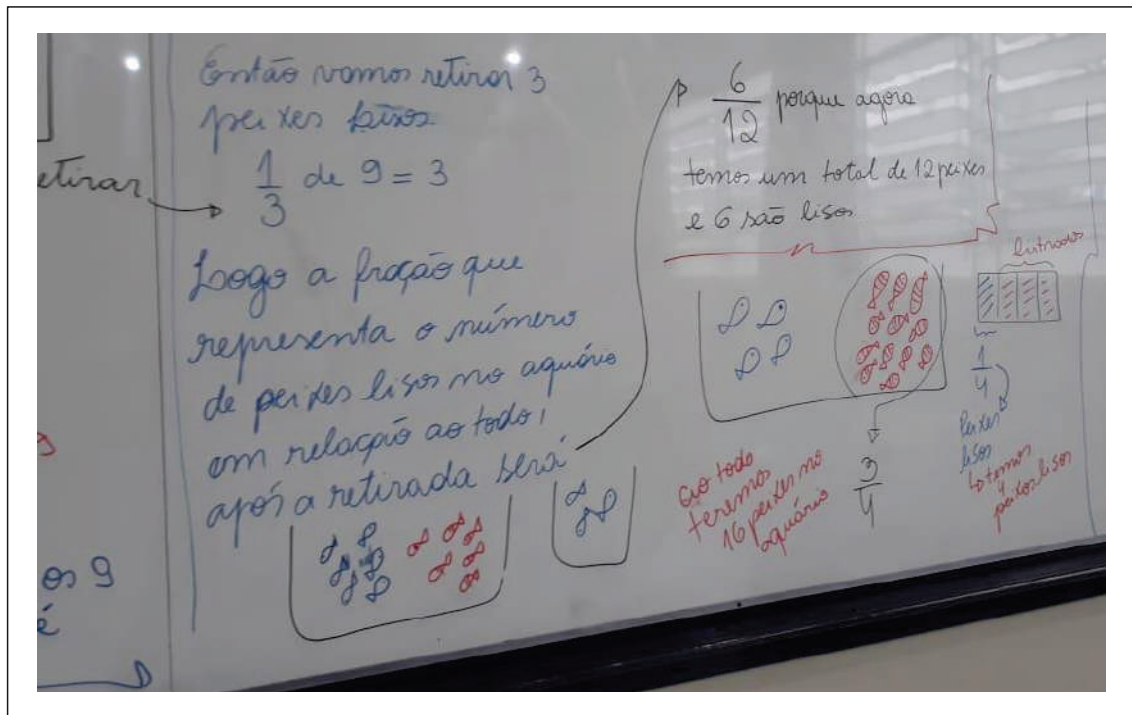 etirar
os 9
é
Então vamos retirar 3
peixes lisos
1/3 de 9 = 3
Logo a fração que
representa o número
de peixes lisos no aquário
em relação ao todo,
após a retirada será
6/12 porque agora
temos um total de 12 peixes
e 6 são lisos
3/4
ao todo
teremos
16 peixes no
aquário
listrados
1/4
Peixes
lisos
temos
4
peixes lisos